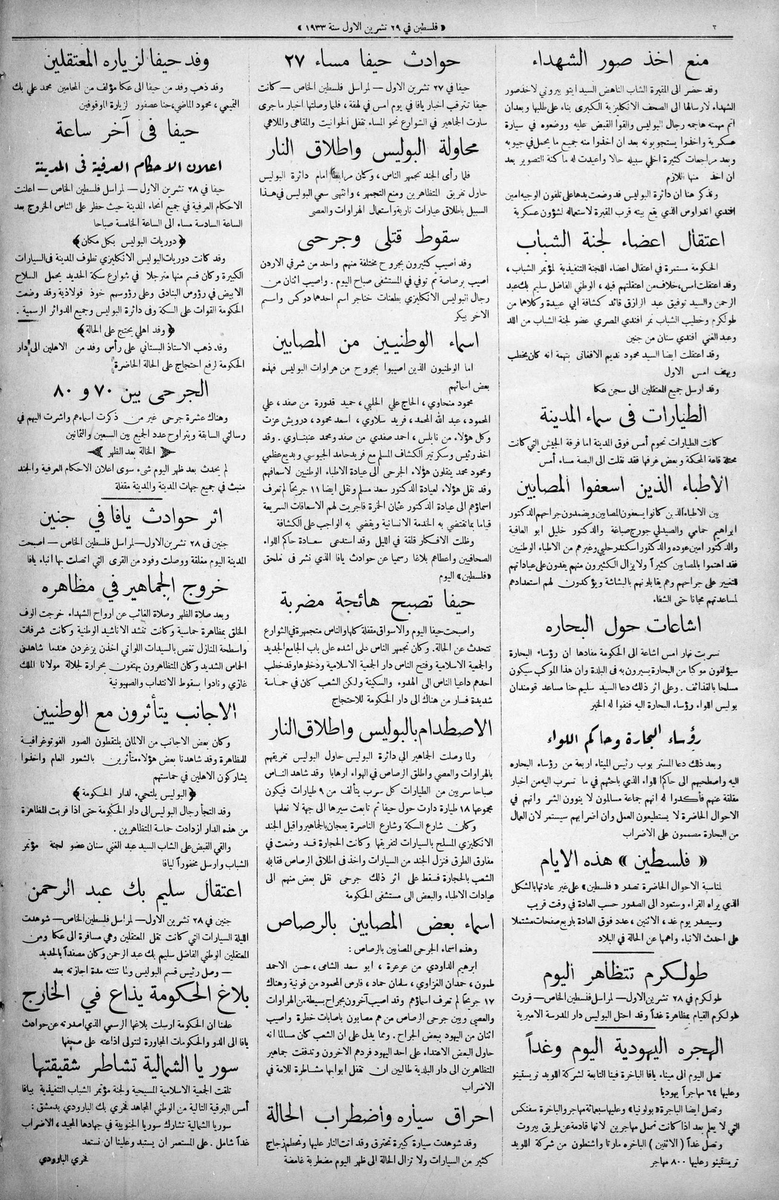 ٢
« فلسطين في ٢٩ تشرين الاول سنة ١٩٣٣ »
منع اخذ صور الشهداء
وقد حضر الى المقبرة الشاب الناهض السيد ايتو بيروني لاخذ صور
الشهداء لارسالها الى الصحف الانكليزية الكبرى بناء على طلبها وبعد ان
اتم مهمته هاجمه رجال البوليس والقوا القبض عليه ووضعوه في سيارة
عسكرية واخذوا يستجوبونه بعد ان اخذوا منه جميع ما يحمل في جيوبه
وبعد مراجعات كثيرة اخلي سبيله حالا واعيدت له ماكنة التصوير بعد
ان اخذ منها اللازم
ونذكر هنا ان دائرة البوليس قد وضعت يدها على تلفون الوجيه امين
افندي اندراوس الذي يقع بيته قرب المقبرة لاستعماله لشؤون عسكرية
اعتقال اعضاء لجنة الشباب
الحكومة مستمرة في اعتقال اعضاء اللجنة التنفيذية لمؤتمر الشباب ،
وقد اعتقلت امس، خلاف من اعتقلتهم قبله ، الوطني الفاضل سليم بك عبد
الرحمن والسيد توفيق عبد الرازق قائد كشافة ابي عبيدة وكلاهما من
طولكرم وخطيب الشباب نمر افندي المصري عضو لجنة الشباب من اللد
وعبد الغني افندي سنان من جنين
وقد اعتقلت ايضا السيد محمود نديم الافغاني بتهمة انه كان يخطب
ويهتف امس الاول
وقد ارسل جميع المعتقلين الى سجن عكا
الطيارات في سماء المدينة
كانت الطيارات تحوم أمس فوق المدينة اما فرقة الجيش التي كانت
محتلة قاعة المحكمة وبعض غرفها فقد نقلت الى البصة مساء أمس
الاطباء الذين اسعفوا المصابين
بين الاطباء الذين كانوا يسعفون المصابين ويضمدون جراحهم الدكتور
ابراهيم حمامي والصيدلي جورج صباغة والدكتور خليل ابو العافية
والدكتور امين هوده والدكتور اسكندر حلبي وغيرهم من الاطباء الوطنيين
فقد اهتموا بالمصابين كثيراً ولا يزال الكثيرون منهم يفدون على عياداتهم
للتغيير على جراحهم وهم يقابلونهم بالبشاشة ويؤكدون لهم استعدادهم
لمساعدتهم مجانا حتى الشفاء
اشاعات حول البحاره
تسربت نهار امس اشاعة الى الحكومة مفادها ان رؤساء البحارة
سيؤلفون موكبا من البحارة يسيرون به في البلدة وان هذا الموكب سيكون
مسلحا بالقذائف . وعلى اثر ذلك دعا السيد سليم حنا مساعد قومندان
بوليس اللواء رؤساء البحارة اليه فنفوا له الخبر
رؤساء البحارة وحاكم اللواء
وبعد ذلك دعا المستر بوب رئيس الميناء اربعة من رؤساء البحاره
اليه واصطحبهم الى حاكم اللواء الذي باحثهم في ما تسرب اليه من اخبار
مقلقة عنهم فأكدوا له انهم جماعة مسالمون لا ينوون الشر وانهم في
الاحوال الحاضرة لا يستطيعون العمل وان اضرابهم سيستمر لان العمال
من البحارة مصممون على الاضراب
« فلسطين » هذه الايام
لمناسبة الاحوال الحاضرة تصدر « فلسطين » على غير عادتها بالشكل
الذي يراه القراء وستعود الى الصدور حسب العادة في وقت قريب
وسيصدر يوم غد ، الاثنين ، عدد فوق العادة باربع صفحات مشتملا
على احدث الانباء واهمها عن الحالة في البلاد
طولكرم تتظاهر اليوم
طولكرم في ٢٨ تشرين الاول — لمراسل فلسطين الخاص — قررت
طولكرم القيام بمظاهرة غداً وقد احتل البوليس دار المدرسة الاميرية
الهجره اليهودية اليوم وغداً
تصل اليوم الى ميناء يافا الباخرة فينا التابعة لشركة اللويد تريستينو
وعليها ٦٤ مهاجراً يهوديا
وتصل ايضا الباخرة « بولونيا » وعليها سبعمائة مهاجر والباخرة سفنكس
التي لا يعلم بعد اذا كانت تحمل مهاجرين لانها قادمة عن طريق بيروت
وتصل غداً ( الاثنين ) الباخره مارتا واشنطون من شركة اللويد
تريستينو وعليها ٨٠٠ مهاجر
حوادث حيفا مساء ٢٧
حيفا في ٢٧ تشرين الاول — لمراسل فلسطين الخاص — كانت
حيفا تترقب اخبار يافا في يوم امس في لهفة ، فلما وصلتها اخبار ما جرى
سارت الجماهير في الشوارع نحو المساء تقفل الحوانيت والمقاهي والملاهي
محاولة البوليس واطلاق النار
فلما رأى الجند تجمهر الناس ، وكان مرابطا امام دائرة البوليس
حاول تفريق المتظاهرين ومنع التجمهر ، وانتهى سعي البوليس في هذا
السبيل باطلاق عيارات نارية واستعمال الهراوات والعصي
سقوط قتلى وجرحى
وقد اصيب كثيرون بجروح مختلفة منهم واحد من شرقي الاردن
اصيب برصاصة ثم توفي في المستشفى صباح اليوم . واصيب اثنان من
رجال البوليس الانكليزي بطعنات خناجر اسم احدهما دوكس واسم
الآخر بيكر
اسماء الوطنيين من المصابين
اما الوطنيون الذين اصيبوا بجروح من هراوات البوليس فهذه
بعض اسمائهم
محمود منحاوي ، الحاج علي الحلبي ، حميد قدورة من صفد ، علي
المحمود ، عبد الله المحمد ، فريد سلاوي ، اسعد محمود ، درويش عزت
وكل هؤلاء من نابلس ، احمد صفدي من صفد ومحمد عنبتاوي . وقد
اخذ رئيس وسكرتير الكشاف المسلم مع فريد حامد الجيوسي وبديع عظمي
ومحمود محمد ينقلون هؤلاء الجرحى الى عيادة الاطباء الوطنيين لاسعافهم
وقد نقل هؤلاء لعيادة الدكتور سعد مسلم ونقل ايضا ١١ جريحاً لم تعرف
اسماؤهم الى عيادة الدكتور عثمان الخمرة فاجريت لهم الاسعافات السريعة
قياما بما تقتضي به الخدمة الانسانية ويقضي به الواجب على الكشافة
وظلت الافكار قلقة في الليل وقد استدعى سعادة حاكم اللواء
الصحافيين واعطاهم بلاغا رسميا عن حوادث يافا الذي نشر في ملحق
« فلسطين » اليوم
حيفا تصبح هائجة مضربة
واصبحت حيفا اليوم والاسواق مقفلة كلها والناس متجمهرة في الشوارع
تتحدث عن الحالة . وكان تجمهر الناس على اشده على باب الجامع الجديد
والجمعية الاسلامية وفتح الناس دار الجمعية الاسلامية ودخلوها وقد خطب
احدهم داعيا الناس الى الهدوء والسكينة ولكن الشعب كان في حماسة
شديدة فسار من هناك الى دار الحكومة للاحتجاج
الاصطدام بالبوليس واطلاق النار
ولما وصلت الجماهير الى دائرة البوليس حاول البوليس تفريقهم
بالهراوات والعصي واطلق الرصاص في الهواء ارهابا وقد شاهد الناس
صباحا سربين من الطيارات كل سرب يتألف من ٩ طيارات فيكون
مجموعها ١٨ طيارة دارت حول حيفا ثم تابعت سيرها الى جهة لا نعلمها
وكان شارع السكة وشارع الناصرة يعجان بالجماهير واقبل الجند
الانكليزي المسلح بالسيارات لتفريقها وكانت الحجارة قد وضعت في
مفارق الطرق فنزل الجند من السيارات واخذ في اطلاق الرصاص فقابله
الشعب بالحجارة فسقط على اثر ذلك جرحى نقل بعض منهم الى
عيادات الاطباء والبعض الى مستشفى الحكومة
اسماء بعض المصابين بالرصاص
وهذه اسماء الجرحى المصابين بالرصاص :
ابرهيم الداودي من عرعرة ، ابو سعد الشامي ، حسن الاحمد
طمون ، حمدان الغزاوي ، سلمان حماد ، فارس المحمود من قونية وهناك
١٧ جريحاً لم تعرف اسماؤهم . وقد اصيب آخرون بجراح بسيطة من الهراوات
والعصي وبين جرحى الرصاص من هم مصابون باصابات خطرة واصيب
اثنان من اليهود ببعض الجراح . ومما يدل على ان الشعب كان مسالما انه
حاول البعض الاعتداء على احد اليهود فردهم آخرون وتدفقت جماهير
المتظاهرين الى دار البلدية طالبين ان تقفل ابوابها مشاطرة للامة في
الاضراب
احراق سياره واضطراب الحالة
وقد شوهدت سيارة كبيرة تحترق وقد اتت النار عليها وتحطم زجاج
كثير من السيارات ولا تزال الحالة الى ظهر اليوم مضطربة غامضة
وفد حيفا لزياره المعتقلين
وقد ذهب وفد من حيفا الى عكا مؤلف من المحامين محمد علي بك
التميمي ، محمود الماضي ، حنا عصفور لزيارة الموقوفين
حيفا في آخر ساعة
اعلان الاحكام العرفية في المدينة
حيفا في ٢٨ تشرين الاول — لمراسل فلسطين الخاص — اعلنت
الاحكام العرفية في جميع انحاء المدينة حيث حظر على الناس الخروج بعد
الساعة السادسة مساء الى الساعة الخامسة صباحا
﴿ دوريات البوليس بكل مكان ﴾
وقد كانت دوريات البوليس الانكليزي تطوف المدينة في السيارات
الكبيرة وكان قسم منها مترجلا في شوارع سكة الحديد يحمل السلاح
الابيض في رؤوس البنادق وعلى رؤوسهم خوذ فولاذية وقد وضعت
الحكومة القوات على السكة وفي دائرة البوليس وجميع الدوائر الرسمية .
﴿ وفد اهلي يحتج على الحالة ﴾
وقد ذهب الاستاذ البستاني على رأس وفد من الاهلين الى دار
الحكومة لرفع احتجاج على الحالة الحاضرة
الجرحى بين ٧٠ و ٨٠
وهناك عشرة جرحى غير من ذكرت اسماءهم واشرت اليهم في
رسائلي السابقة ويتراوح عدد الجميع بين السبعين والثمانين
الحالة بعد الظهر
لم يحدث بعد ظهر اليوم شيء سوى اعلان الاحكام العرفية والجند
منبث في جميع جهات المدينة والمدينة مقفلة
اثر حوادث يافا في جنين
جنين في ٢٨ تشرين الاول — لمراسل فلسطين الخاص — اصبحت
المدينة اليوم مقفلة ووصلت وفود من القرى التي اتصلت بها انباء يافا
خروج الجماهير في مظاهره
وبعد صلاة الظهر وصلاة الغائب عن ارواح الشهداء خرجت الوف
الخلق بمظاهرة حماسية وكانت تنشد الاناشيد الوطنية وكانت شرفات
واسطحة المنازل تغص بالسيدات اللواتي اخذن يزغردن عندما شاهدن
الحماس الشديد وكان المتظاهرون يهتفون بحرارة لجلالة مولانا الملك
غازي ونادوا بسقوط الانتداب والصهيونية
الاجانب يتأثرون مع الوطنيين
وكان بعض الاجانب من الالمان يلتقطون الصور الفوتوغرافية
للمظاهرة وقد شاهدنا بعض هؤلاء متأثرين بالشعور العام واخذوا
يشاركون الاهلين في حماستهم
﴿ البوليس يلتجىء لدار الحكومة ﴾
وقد التجأ رجال البوليس الى دار الحكومة حتى اذا قربت المظاهرة
من هذه الدار ازدادت حماسة المتظاهرين .
والقي القبض على الشاب السيد عبد الغني سنان عضو لجنة مؤتمر
الشباب وارسل مخفوراً ليافا
اعتقال سليم بك عبد الرحمن
جنين في ٢٨ تشرين الاول — لمراسل فلسطين الخاص — شوهدت
الليلة السيارات التي كانت تقل المعتقلين وهي مسافرة الى عكا ومن
المعتقلين الوطني الفاضل سليم بك عبد الرحمن وكان مصفداً بالحديد
— وصل رئيس قسم البوليس ولما تنته مدة اجازته بعد
بلاغ الحكومة يذاع في الخارج
علمنا ان الحكومة ارسلت بلاغها الرسمي الذي اصدرته عن حوادث
يافا الى الدول والحكومات المجاورة لتتولى اذاعته على صحفها
سوريا الشمالية تشاطر شقيقتها
تلقت الجمعية الاسلامية المسيحية ولجنة مؤتمر الشباب التنفيذية بيافا
أمس البرقية التالية من الوطني المجاهد فخري بك البارودي بدمشق :
سوريا الشمالية تشارك سوريا الجنوبية في جهادها المجيد ، الاضراب
غداً شامل . على المستعمر ان يستبد وعلينا ان نستعد
فخري البارودي